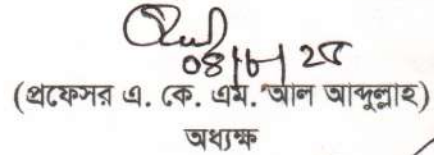 ০৪|৮| ২৫
(প্রফেসর এ. কে. এম. আল আব্দুল্লাহ)
অধ্যক্ষ